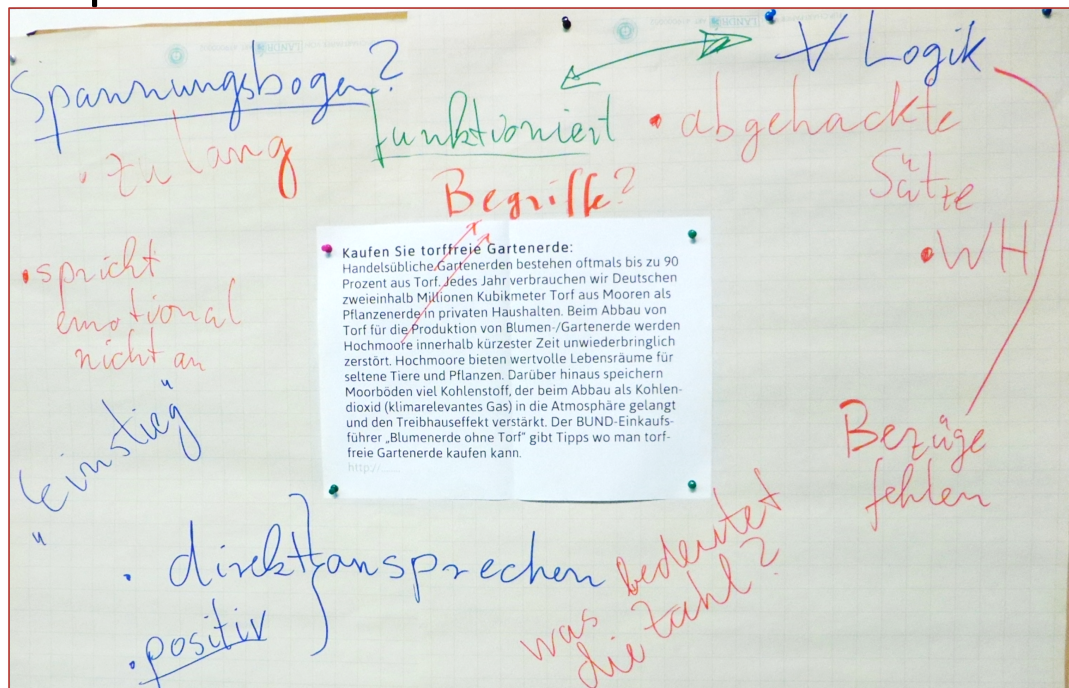 Spannungsbogen?
• zu lang
funktioniert
∀ Logik
• abgehackte
Sätze
• WH
Begriffe?
• spricht
emotional
nicht an
Kaufen Sie torffreie Gartenerde:
Handelsübliche Gartenerden bestehen oftmals bis zu 90
Prozent aus Torf. Jedes Jahr verbrauchen wir Deutschen
zweieinhalb Millionen Kubikmeter Torf aus Mooren als
Pflanzenerde in privaten Haushalten. Beim Abbau von
Torf für die Produktion von Blumen-/Gartenerde werden
Hochmoore innerhalb kürzester Zeit unwiederbringlich
zerstört. Hochmoore bieten wertvolle Lebensräume für
seltene Tiere und Pflanzen. Darüber hinaus speichern
Moorböden viel Kohlenstoff, der beim Abbau als Kohlen-
dioxid (klimarelevantes Gas) in die Atmosphäre gelangt
und den Treibhauseffekt verstärkt. Der BUND-Einkaufs-
führer „Blumenerde ohne Torf" gibt Tipps wo man torf-
freie Gartenerde kaufen kann.
http://......
"Einstieg"
Bezüge
fehlen
• direkt ansprechen
• positiv
was bedeutet
die Zahl?